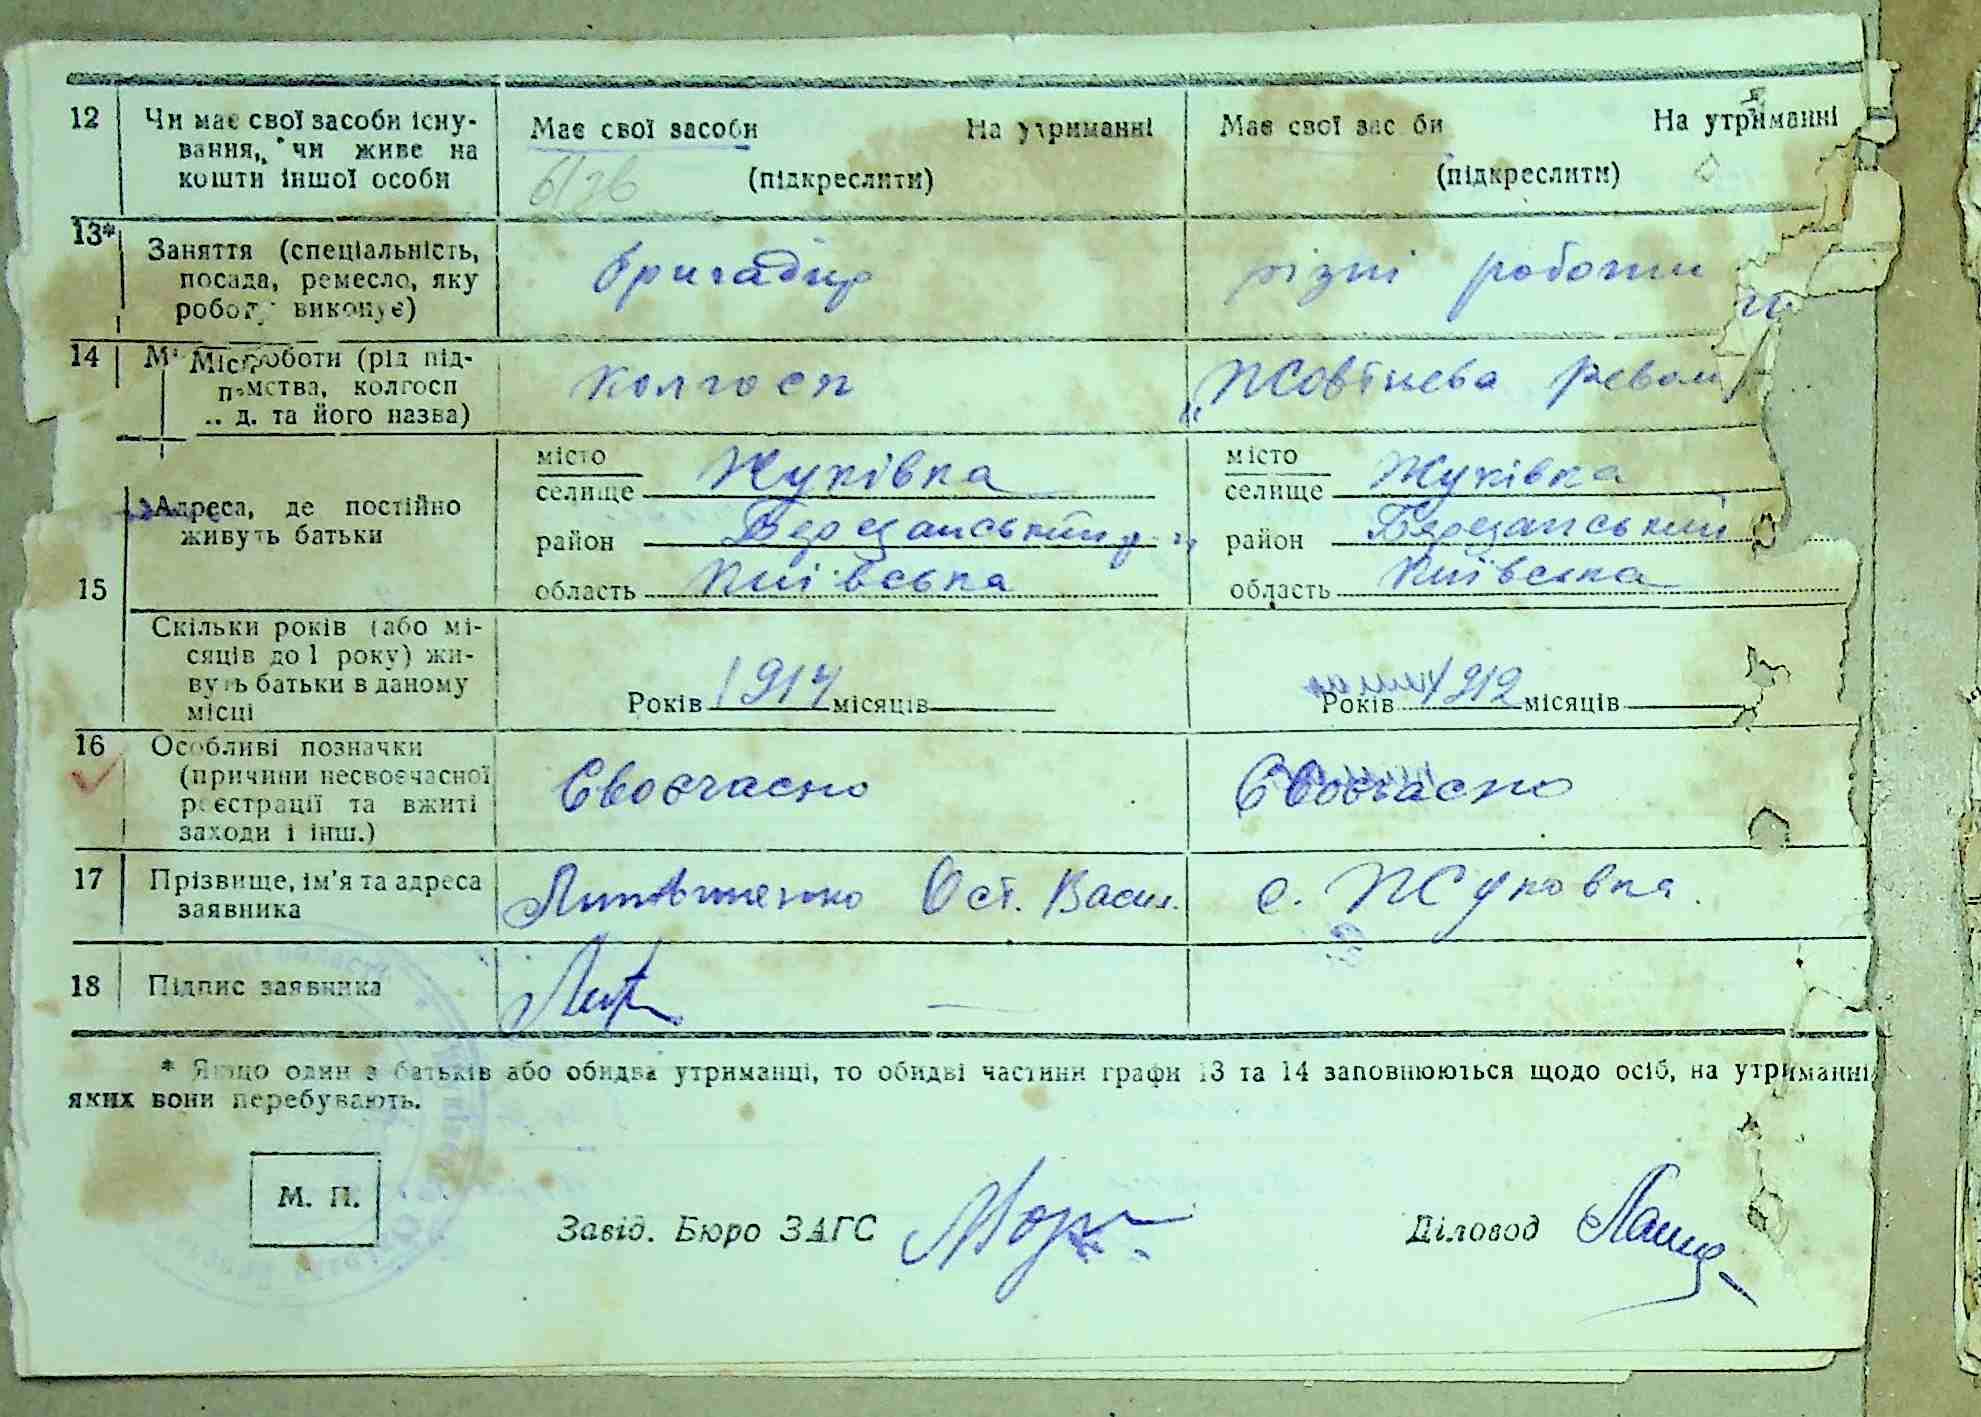 12 Чи має свої засоби існу- Має свої засоби На утриманні Має свої зас би На утриманні
вання, чи живе на
кошти іншої особи (підкреслити) (підкреслити)
13* Заняття (спеціальність, бригадир різні роботи
посада, ремесло, яку
роботу виконує)
14 Міс роботи (рід під- колгосп „Жовтнева револ
мства, колгосп
д. та його назва)
15 Адреса, де постійно живуть батьки
місто Жуківка місто Жуківка
селище селище
район Березанський район Березанський
область Київська область Київська
Скільки років (або мі-
сяців до 1 року) жи-
вуть батьки в даному Років 1914 місяців Років 1912 місяців
місці
16 Особливі позначки
(причини несвоєчасної Своєчасно Своєчасно
реєстрації та вжиті
заходи і інш.)
17 Прізвище, ім'я та адреса Литвиненко Ост. Васил. с. Жуковка.
заявника
18 Підпис заявника
* Якщо один з батьків або обидва утриманці, то обидві частини графи 13 та 14 заповнюються щодо осіб, на утриманні
яких вони перебувають.
М. П.
Завід. Бюро ЗАГС Діловод